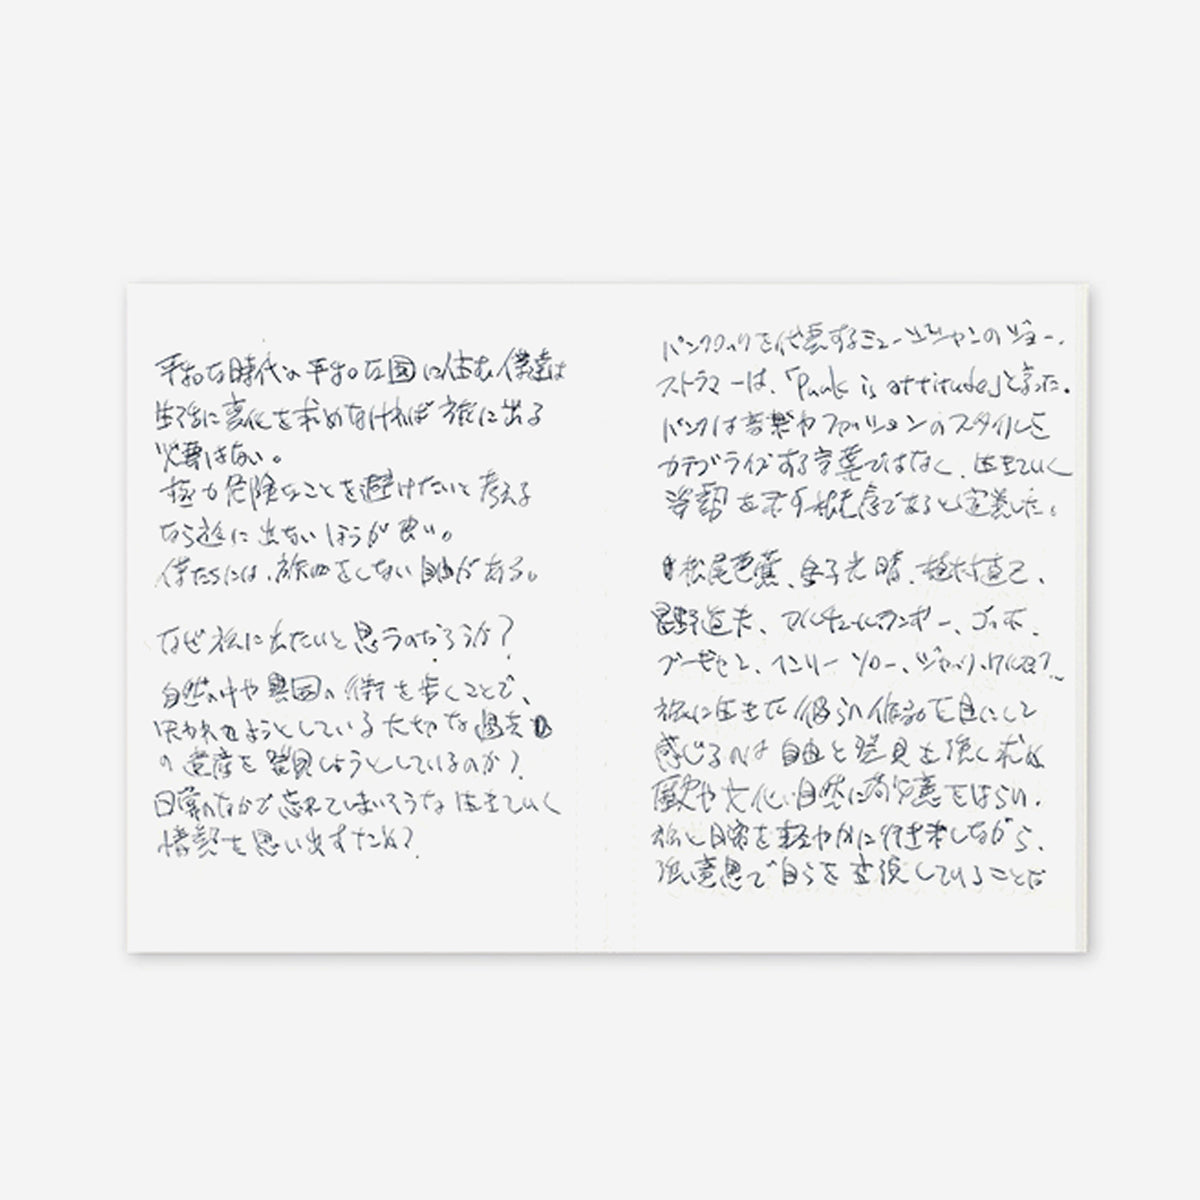 平和な時代の平和な国に住む僕達は
生活に変化を求めなければ旅に出る
必要はない。
極力危険なことを避けたいと考える
なら旅に出ないほうが良い。
僕たちには、旅をしない自由がある。
なぜ旅に出たいと思うのだろうか?
自然の中や異国の街を歩くことで、
失われようとしている大切な過去
の遺産を発見しようとしているのか?
日常のなかで忘れてしまいそうな生きていく
姿勢を思い出すため?
パンクロックを代表するミュージシャンのジョー・
ストラマーは、「Punk is attitude」と言った。
パンクは音楽やファッションのスタイルを
カテゴライズする言葉ではなく、生きていく
姿勢を示す根源であると定義した。
松尾芭蕉、金子光晴、植村直己、
星野道夫、アルチュールランボー、ゴッホ、
ブーゼセン、ヘンリー ソロー、ジャック・
旅に生きた彼らの作品を目にして
感じるのは自由と発見を強く求め
歴史や文化、自然に敬意をはらい、
旅と日常を軽やかに行き来しながら、
強い意思で自らを表現していることだ